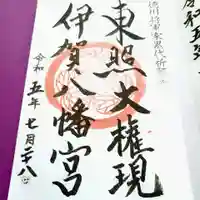 徳川将軍家累代祈願
東照大権現
伊賀八幡宮
令和五年七月二十八